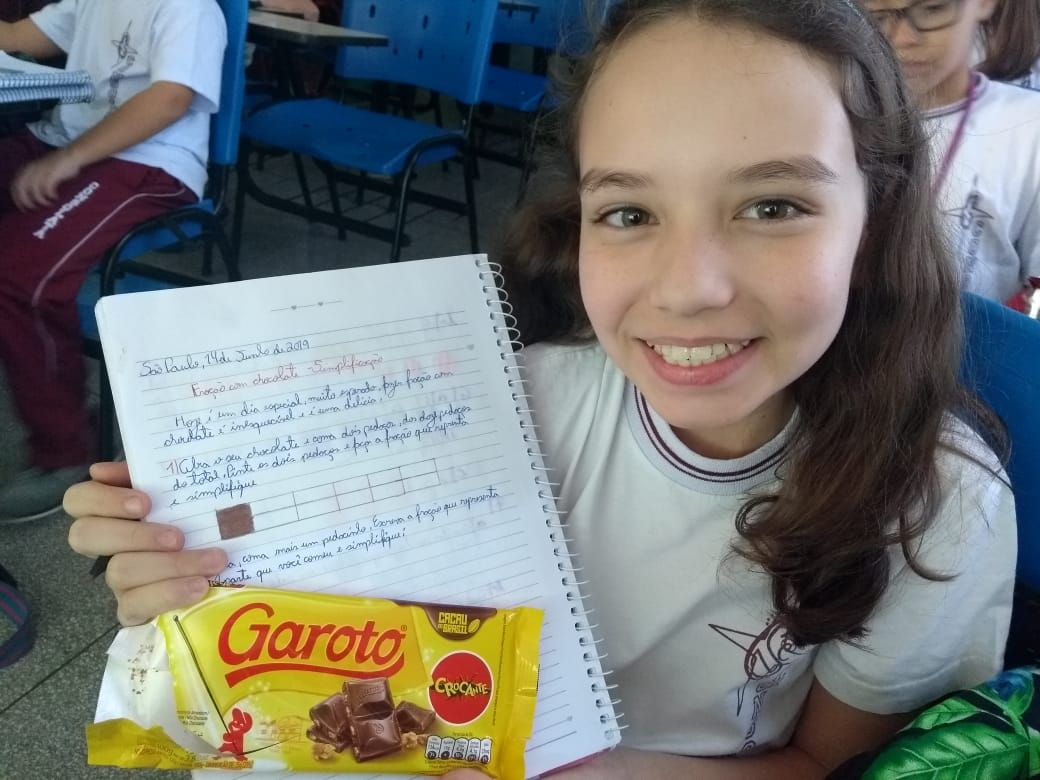 São Paulo, 14 de Junho de 2019
Fração com chocolate - Simplificação
Hoje é um dia especial, muito esperado, fazer fração com
chocolate é inesquecível e é uma delícia!
1) Abra o seu chocolate e coma dois pedaços, dos doze pedaços
do total, pinte os dois pedaços e faça a fração que representa
e simplifique
, coma mais um pedacinho. Escreva a fração que representa
parte que você comeu e simplifique!
Garoto®
CACAU
DO BRASIL
CROCANTE